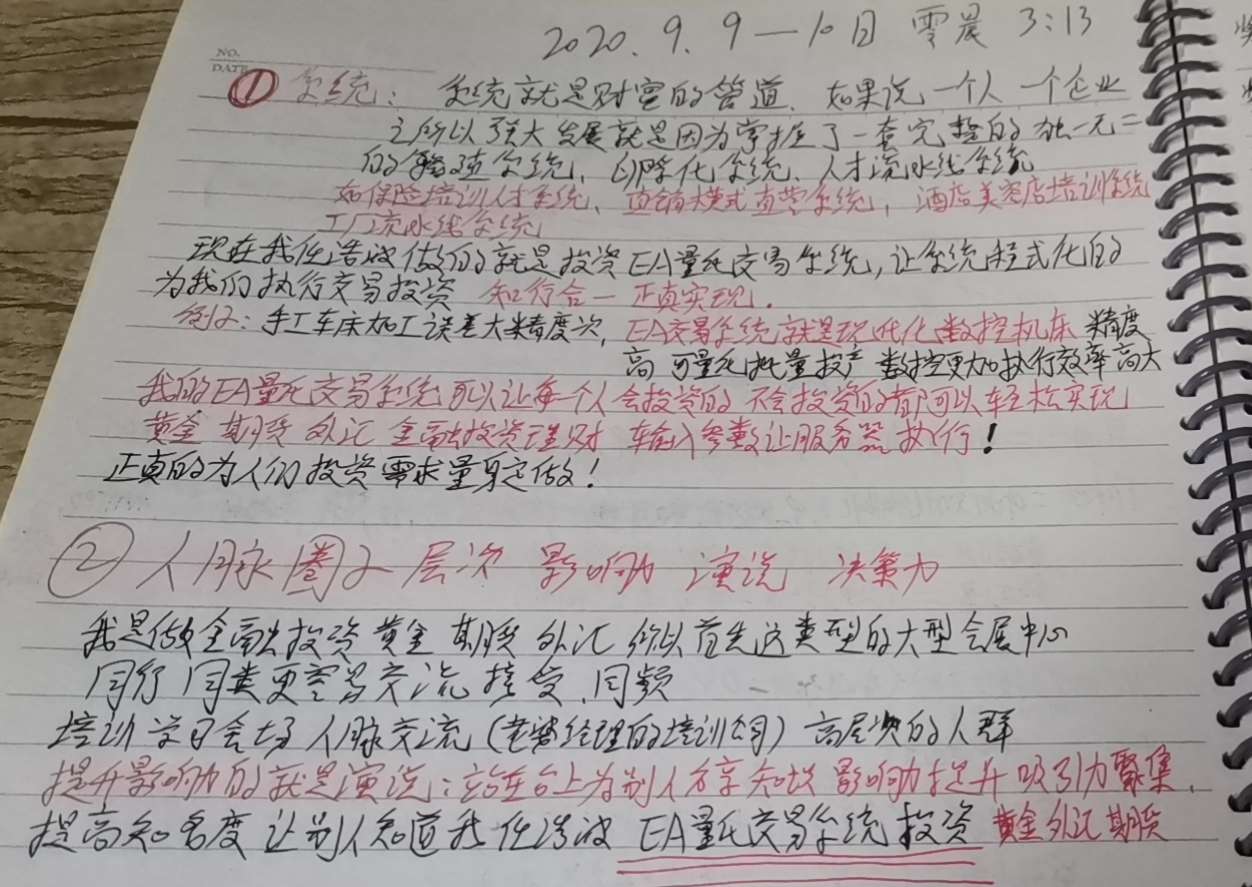 2020.9.9—10日 零晨 3:13
NO.
DATE
① 系统: 系统就是财富的管道. 如果说 一个人 一个企业
之所以强大发展就是因为掌握了一套完整的独一无二
的 系统, 系统. 人才流水线系统
如保险培训人才系统、直销模式直营系统, 酒店美容店培训系统
工厂流水线系统
现在我任浩波做的就是投资EA量化交易系统,让系统程式化的
为我们执行交易投资 知行合一 正真实现.
例子: 手工车床加工误差大精度次, EA交易系统就是现代化数控机床 精度
高 可量化批量投产 数控更加执行效率高大
我的EA量化交易系统可以让每一个人会投资的 不会投资的都可以轻松实现
黄金 期货 外汇 金融投资理财 输入参数让服务器执行!
正真的为人们投资需求量身定做!
② 人脉圈子 层次 影响力 演说 决策力
我是做金融投资 黄金 期货 外汇 所以首先这类型的大型会展中心
同行 同类更容易交流 接受. 同频
培训学习会场 人脉交流 (老婆经理的培训公司) 高层次的人群
提升影响力的就是演说: 站在台上为别人分享知识 影响力提升 吸引力聚集.
提高知名度 让别人知道我任浩波 EA量化交易系统投资 黄金外汇期货